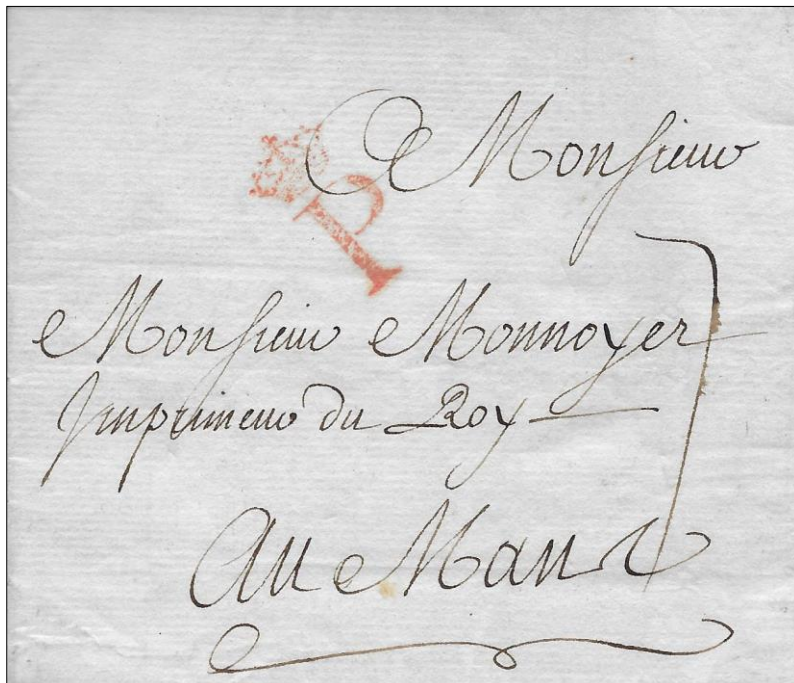 A Monsieur
P
Monsieur Monnoyer
Imprimeur du Roy
Au Mans
7